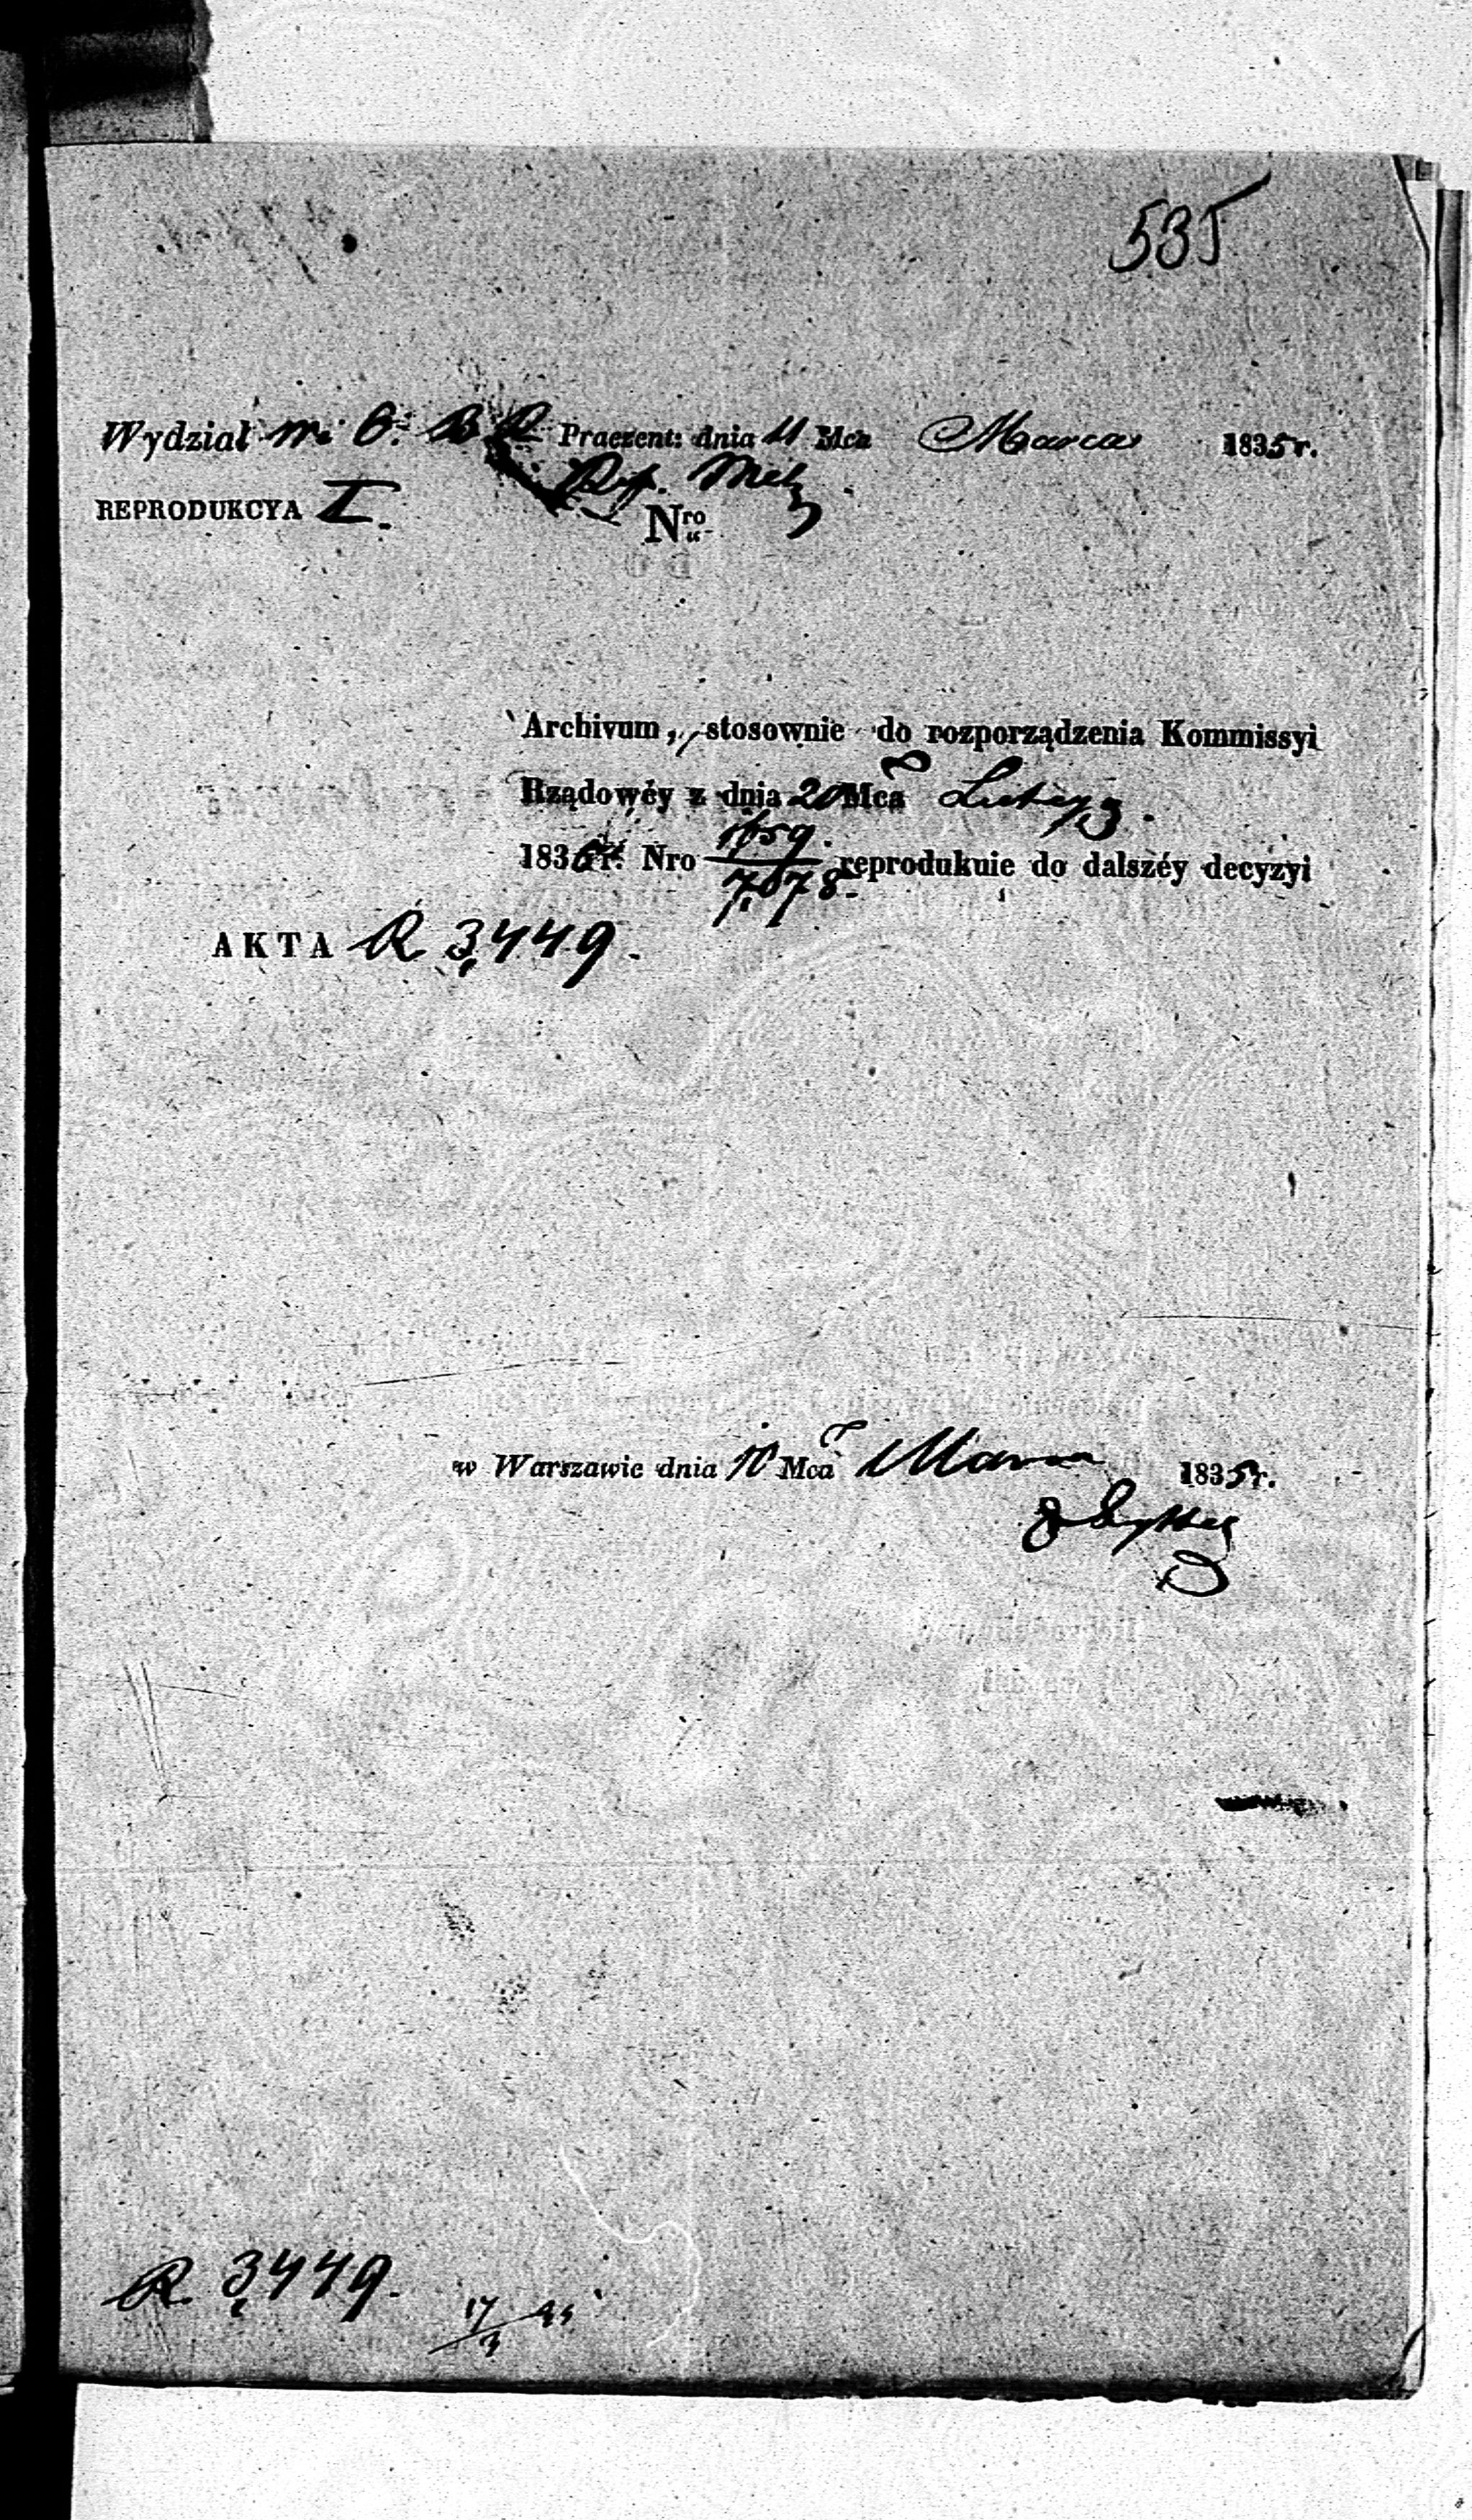 535
Wydział Praezent: dnia 11 Mca Marca 1835 r.
REPRODUKCYA I.
Nro
Archivum, stosownie do rozporządzenia Kommissyi
Rządowéy z dnia 20 Mca Lutego
183 r. Nro 7,078. reprodukuie do dalszéy decyzyi
AKTA R 3,449.
w Warszawie dnia 10 Mca Marca 1835 r.
R. 3,449.
17/3